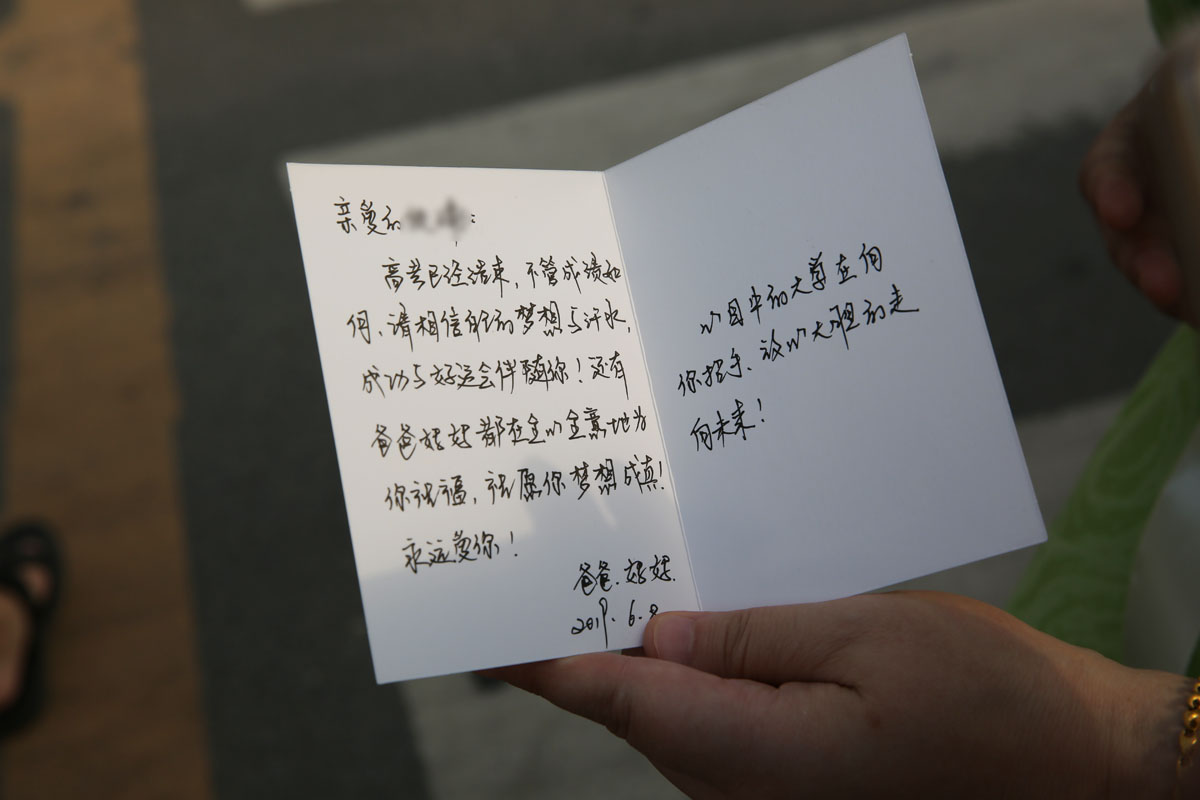 亲爱的
高考已经结束,不管成绩如
何、请相信自己的梦想与汗水,
成功与好运会伴随你!还有
爸爸妈妈都在全心全意地为
你祝福,祝愿你梦想成真!
永远爱你!
爸爸.妈妈.
2019.6.
心目中的大学在向
你招手、放心大胆的走
向未来!